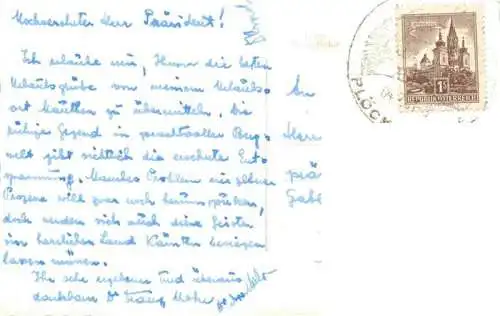 Hochverehrter Herr Präsident!
Ich erlaube mir, Ihnen die besten
Urlaubsgrüße von meinem Urlaubs-
ort Mauthen zu übermitteln. Die
ruhige Gegend in prachtvoller Berg-
welt gibt sichtlich die ersehnte Ent-
spannung. Manches Problem
Prozess will zwar noch herumspuken,
doch werden sich auch diese Geister
im herrlichen Land Kärnten besiegen
lassen müssen.
Ihr sehr ergebener und überaus
dankbarer Dr Franz
An
Herr
präs
Gabe
PLÖCK
1S
REPUBLIK ÖSTERREICH